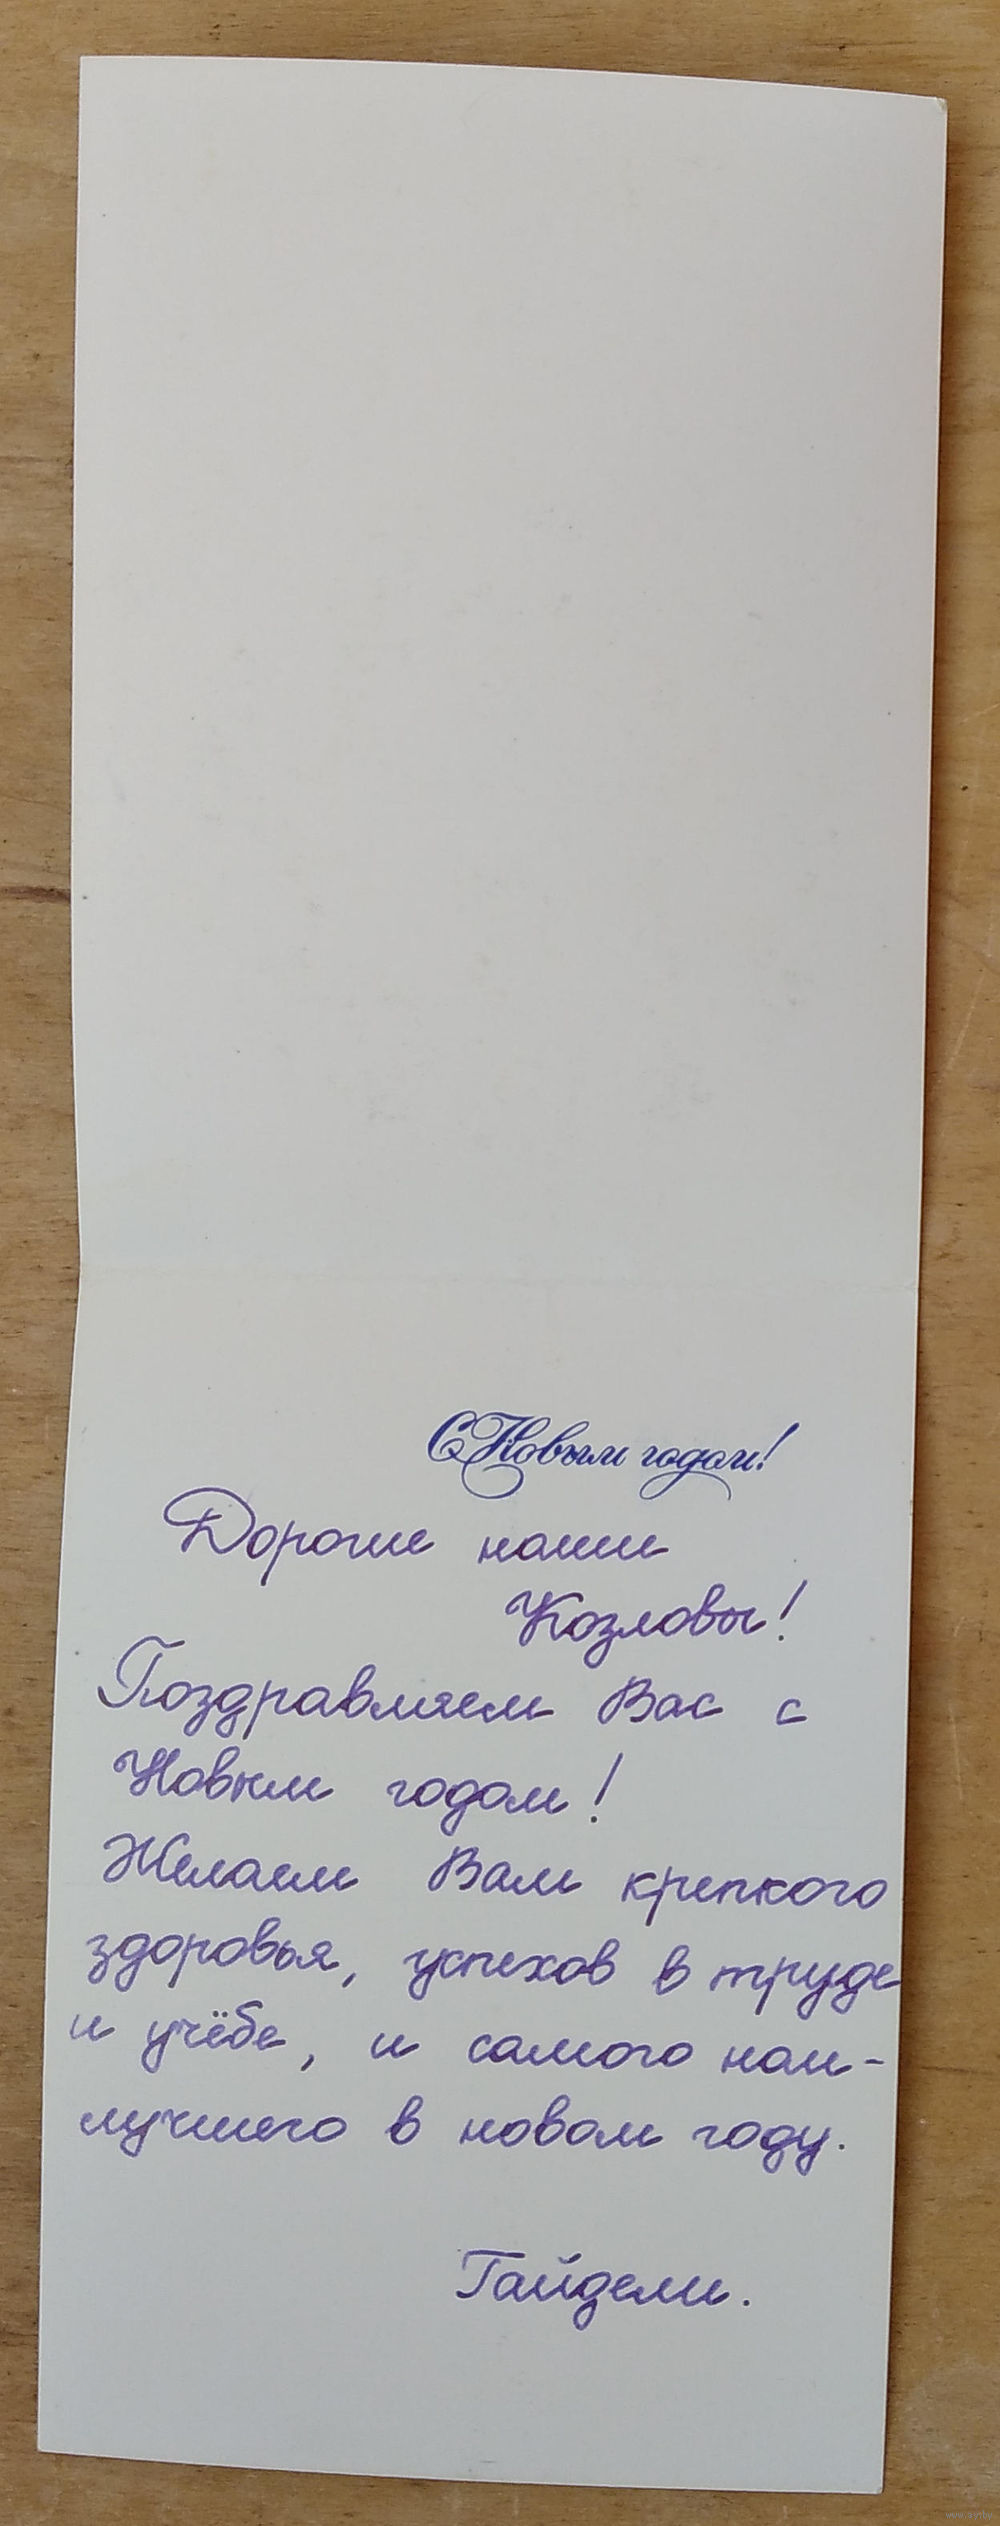 С Новым годом!
Дорогие наши
Козловы!
Поздравляем Вас с
Новым годом!
Желаем Вам крепкого
здоровья, успехов в труде
и учёбе, и самого наи-
лучшего в новом году.
Гайдели.
www.ay.by